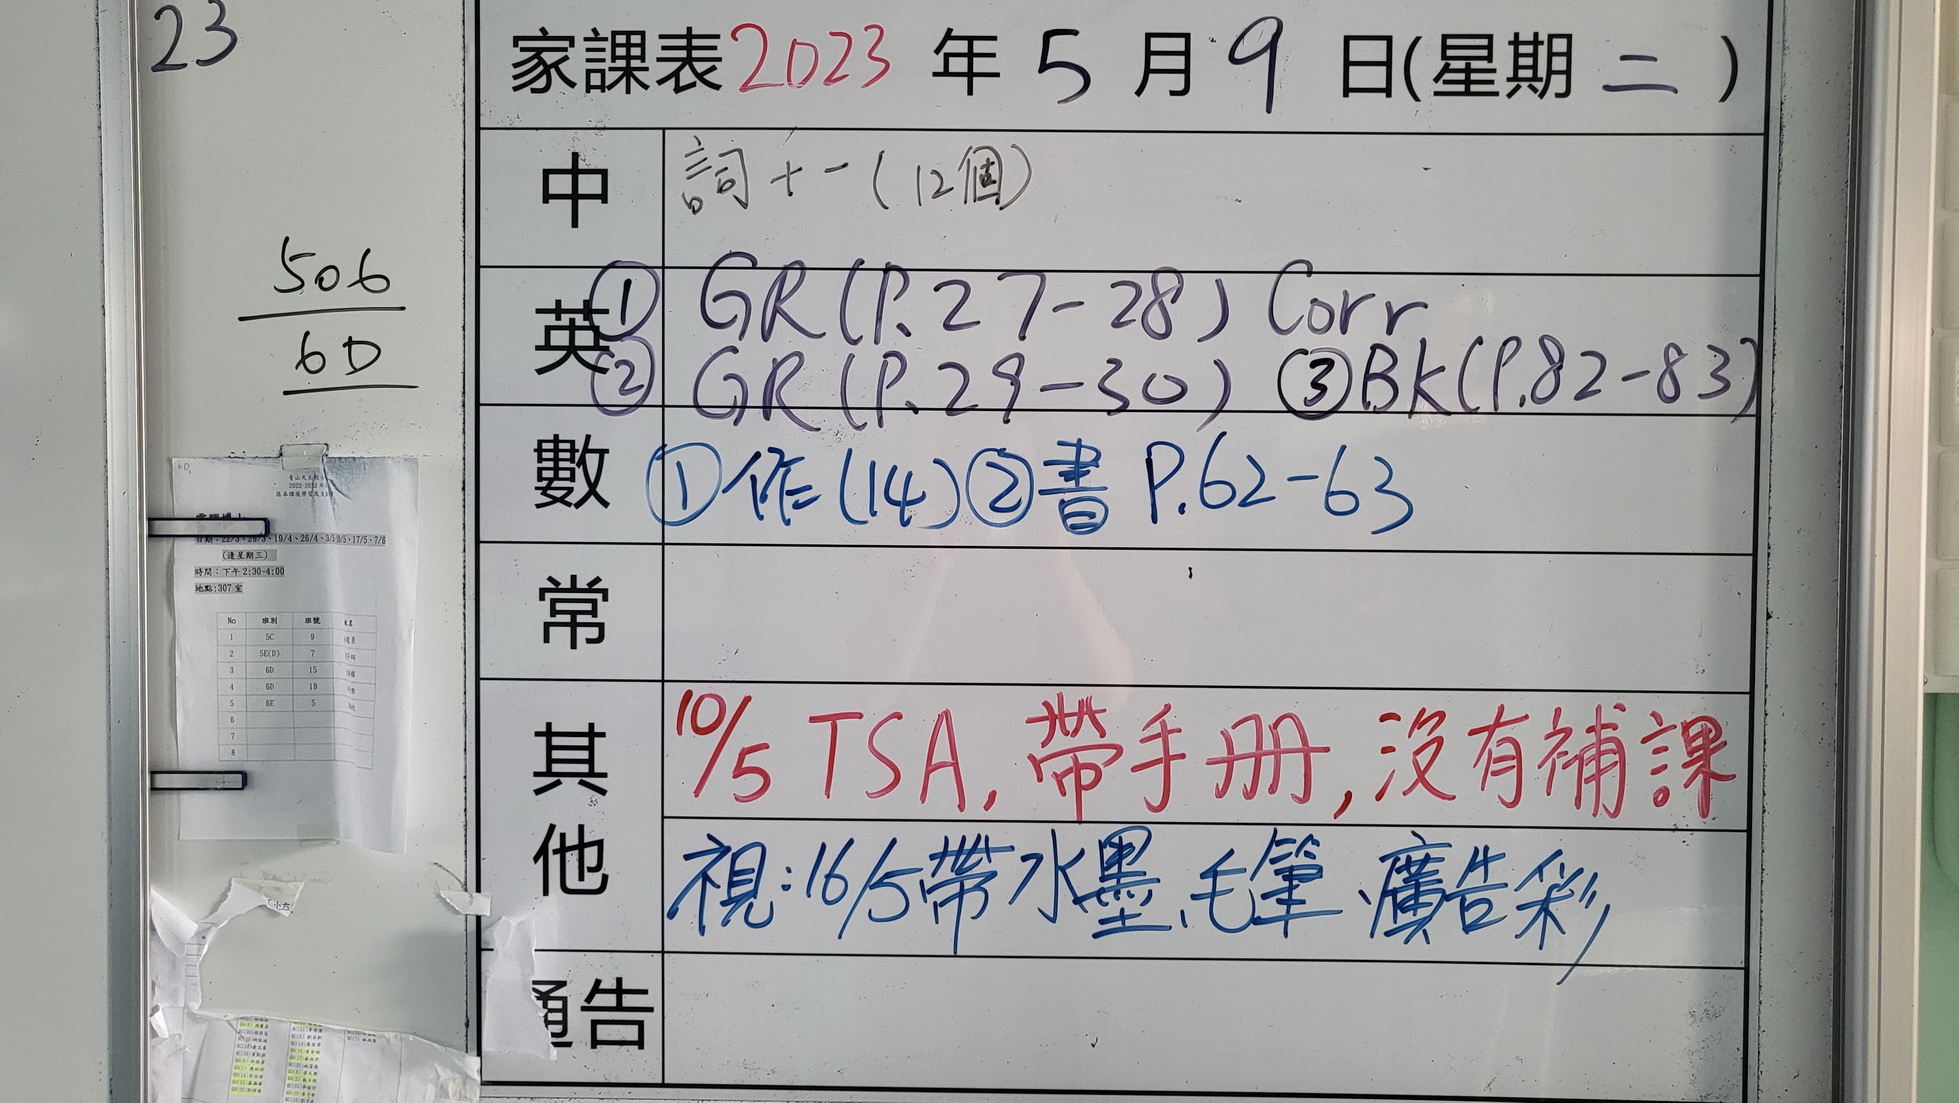 23
506
6D
家課表2023年5月9日(星期二)
中 詞十一(12個)
英 ① GR(P.27-28) Corr
② GR(P.29-30) ③Bk(P.82-83)
數 ①作(14)②書 P.62-63
常
其他 10/5 TSA, 帶手册, 沒有補課
視:16/5帶水墨、毛筆、廣告彩
通告
6D
2022-2023
(逢星期三)
時間:下午 2:30-4:00
地點:307 室
No 班別 班號 姓名
1 5C 9
2 5E(D) 7
3 6D 15
4 6D 19
5 6E 5
6
7
8